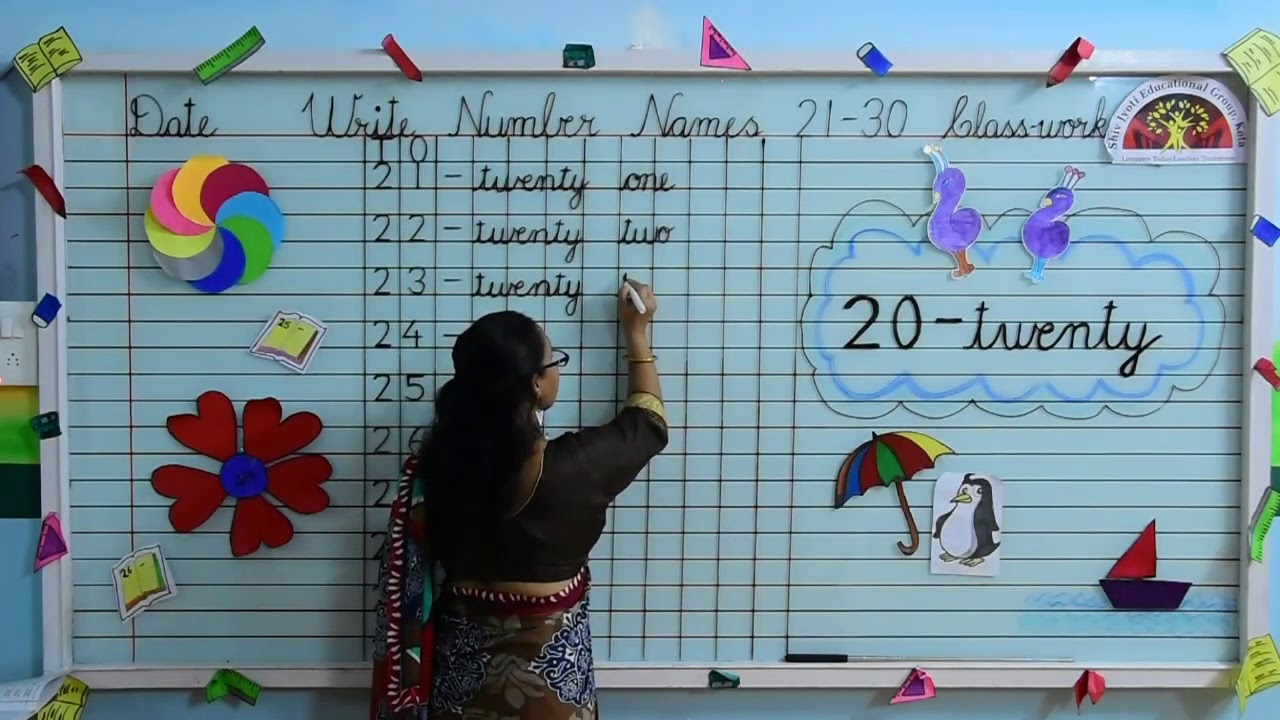 Date Write Number Names 21-30 Classwork
Shiv Jyoti Educational Group, Kota
Learners Today, Leaders Tomorrow
T O
21 - twenty one
22 - twenty two
23 - twenty t
24 -
25
26
2
20 - twenty
25 -
26 -